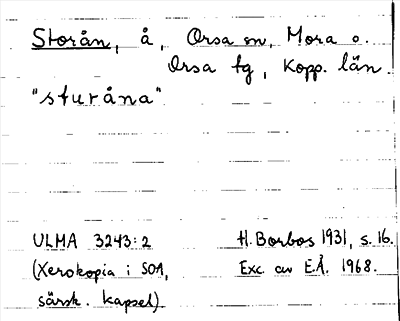 Storån, å, Orsa sn, Mora o.
Orsa tg, Kopp. län.
"sturåna"
ULMA 3243:2 H. Borbos 1931, s. 16.
(Xerokopia i SOA, Exc. av E.Å. 1968.
särsk. kapsel)